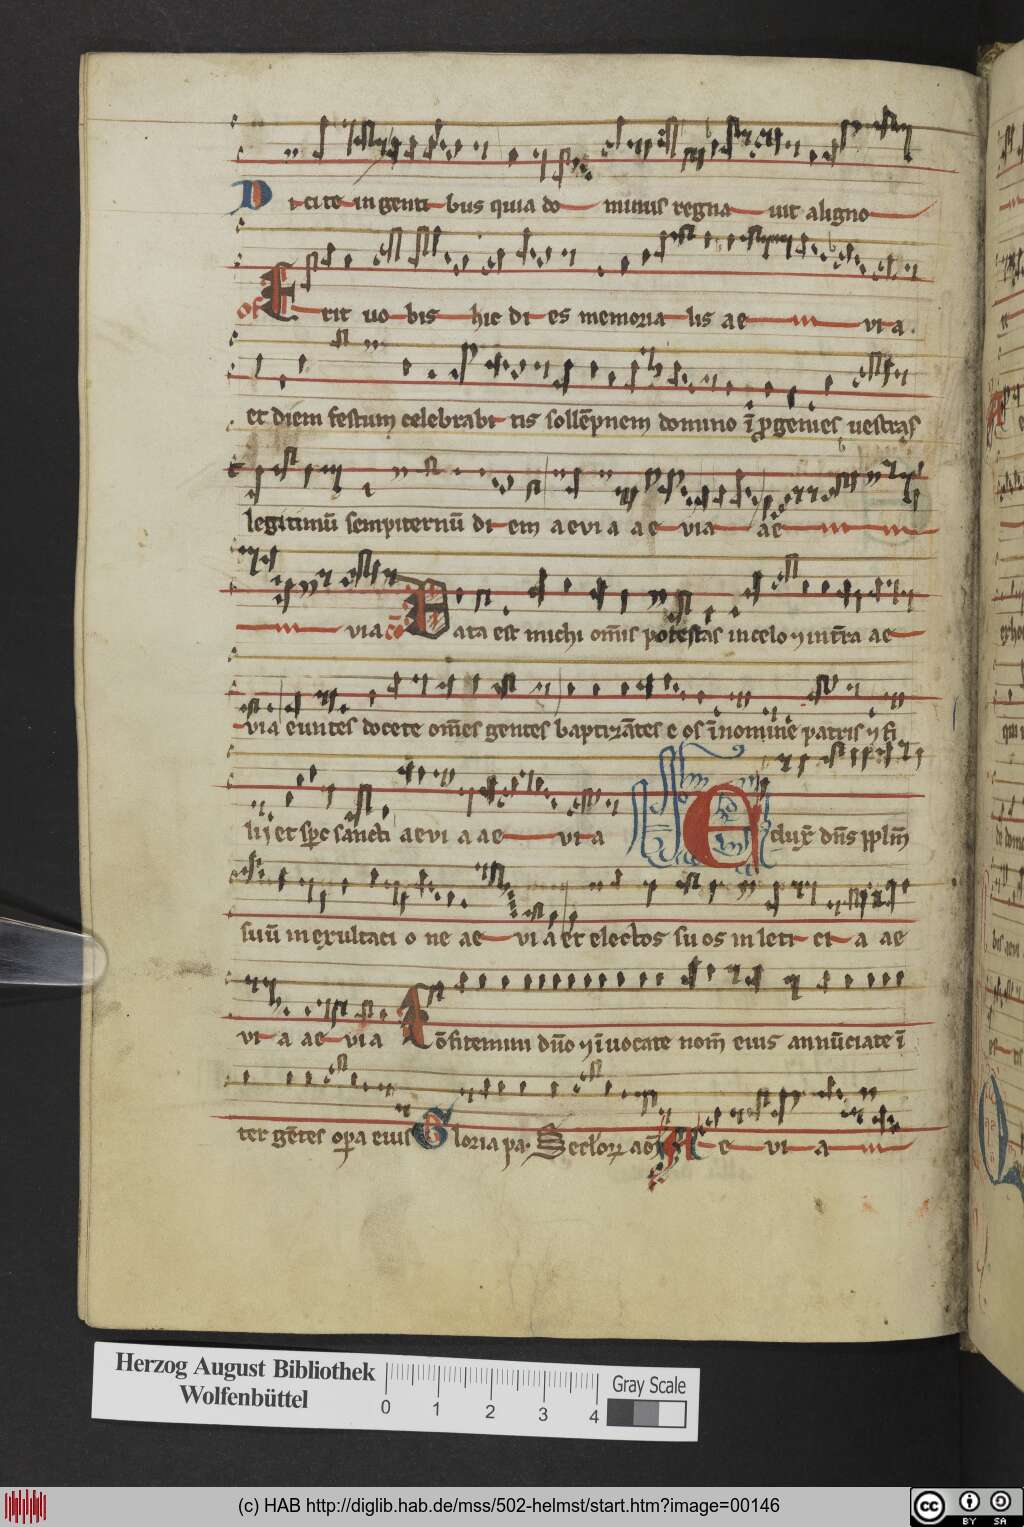 Dicite in genti bus quia do minus regna uit a ligno
of Erit uo bis hic di es memoria lis ae vi a .
et diem festum celebrabi tis sollēpnem domino ī ꝓgenies uestras
legitimū sempiternū di em aevi a ae via ae
via cō Data est michi om̄is potestas in celo ⁊ in t̄ra ae
via euntes docete om̄es gentes baptizātes e os ī nomine patris ⁊ fi
lij et sp̄c sancti aevi a ae vi a Eduxꝰ dn̄s ppl̄m
suū in exultaci o ne ae vi a et electos su os in leti ci a ae
vi a ae via Cōfitemini dn̄o ⁊ īuocate nom̄ eius annūciate ī
ter gētes opa eius Gloria pa. Seclorꝝ am̄ Ae vi a
Herzog August Bibliothek
Wolfenbüttel
0 1 2 3 4
Gray Scale
(c) HAB http://diglib.hab.de/mss/502-helmst/start.htm?image=00146
cc BY SA